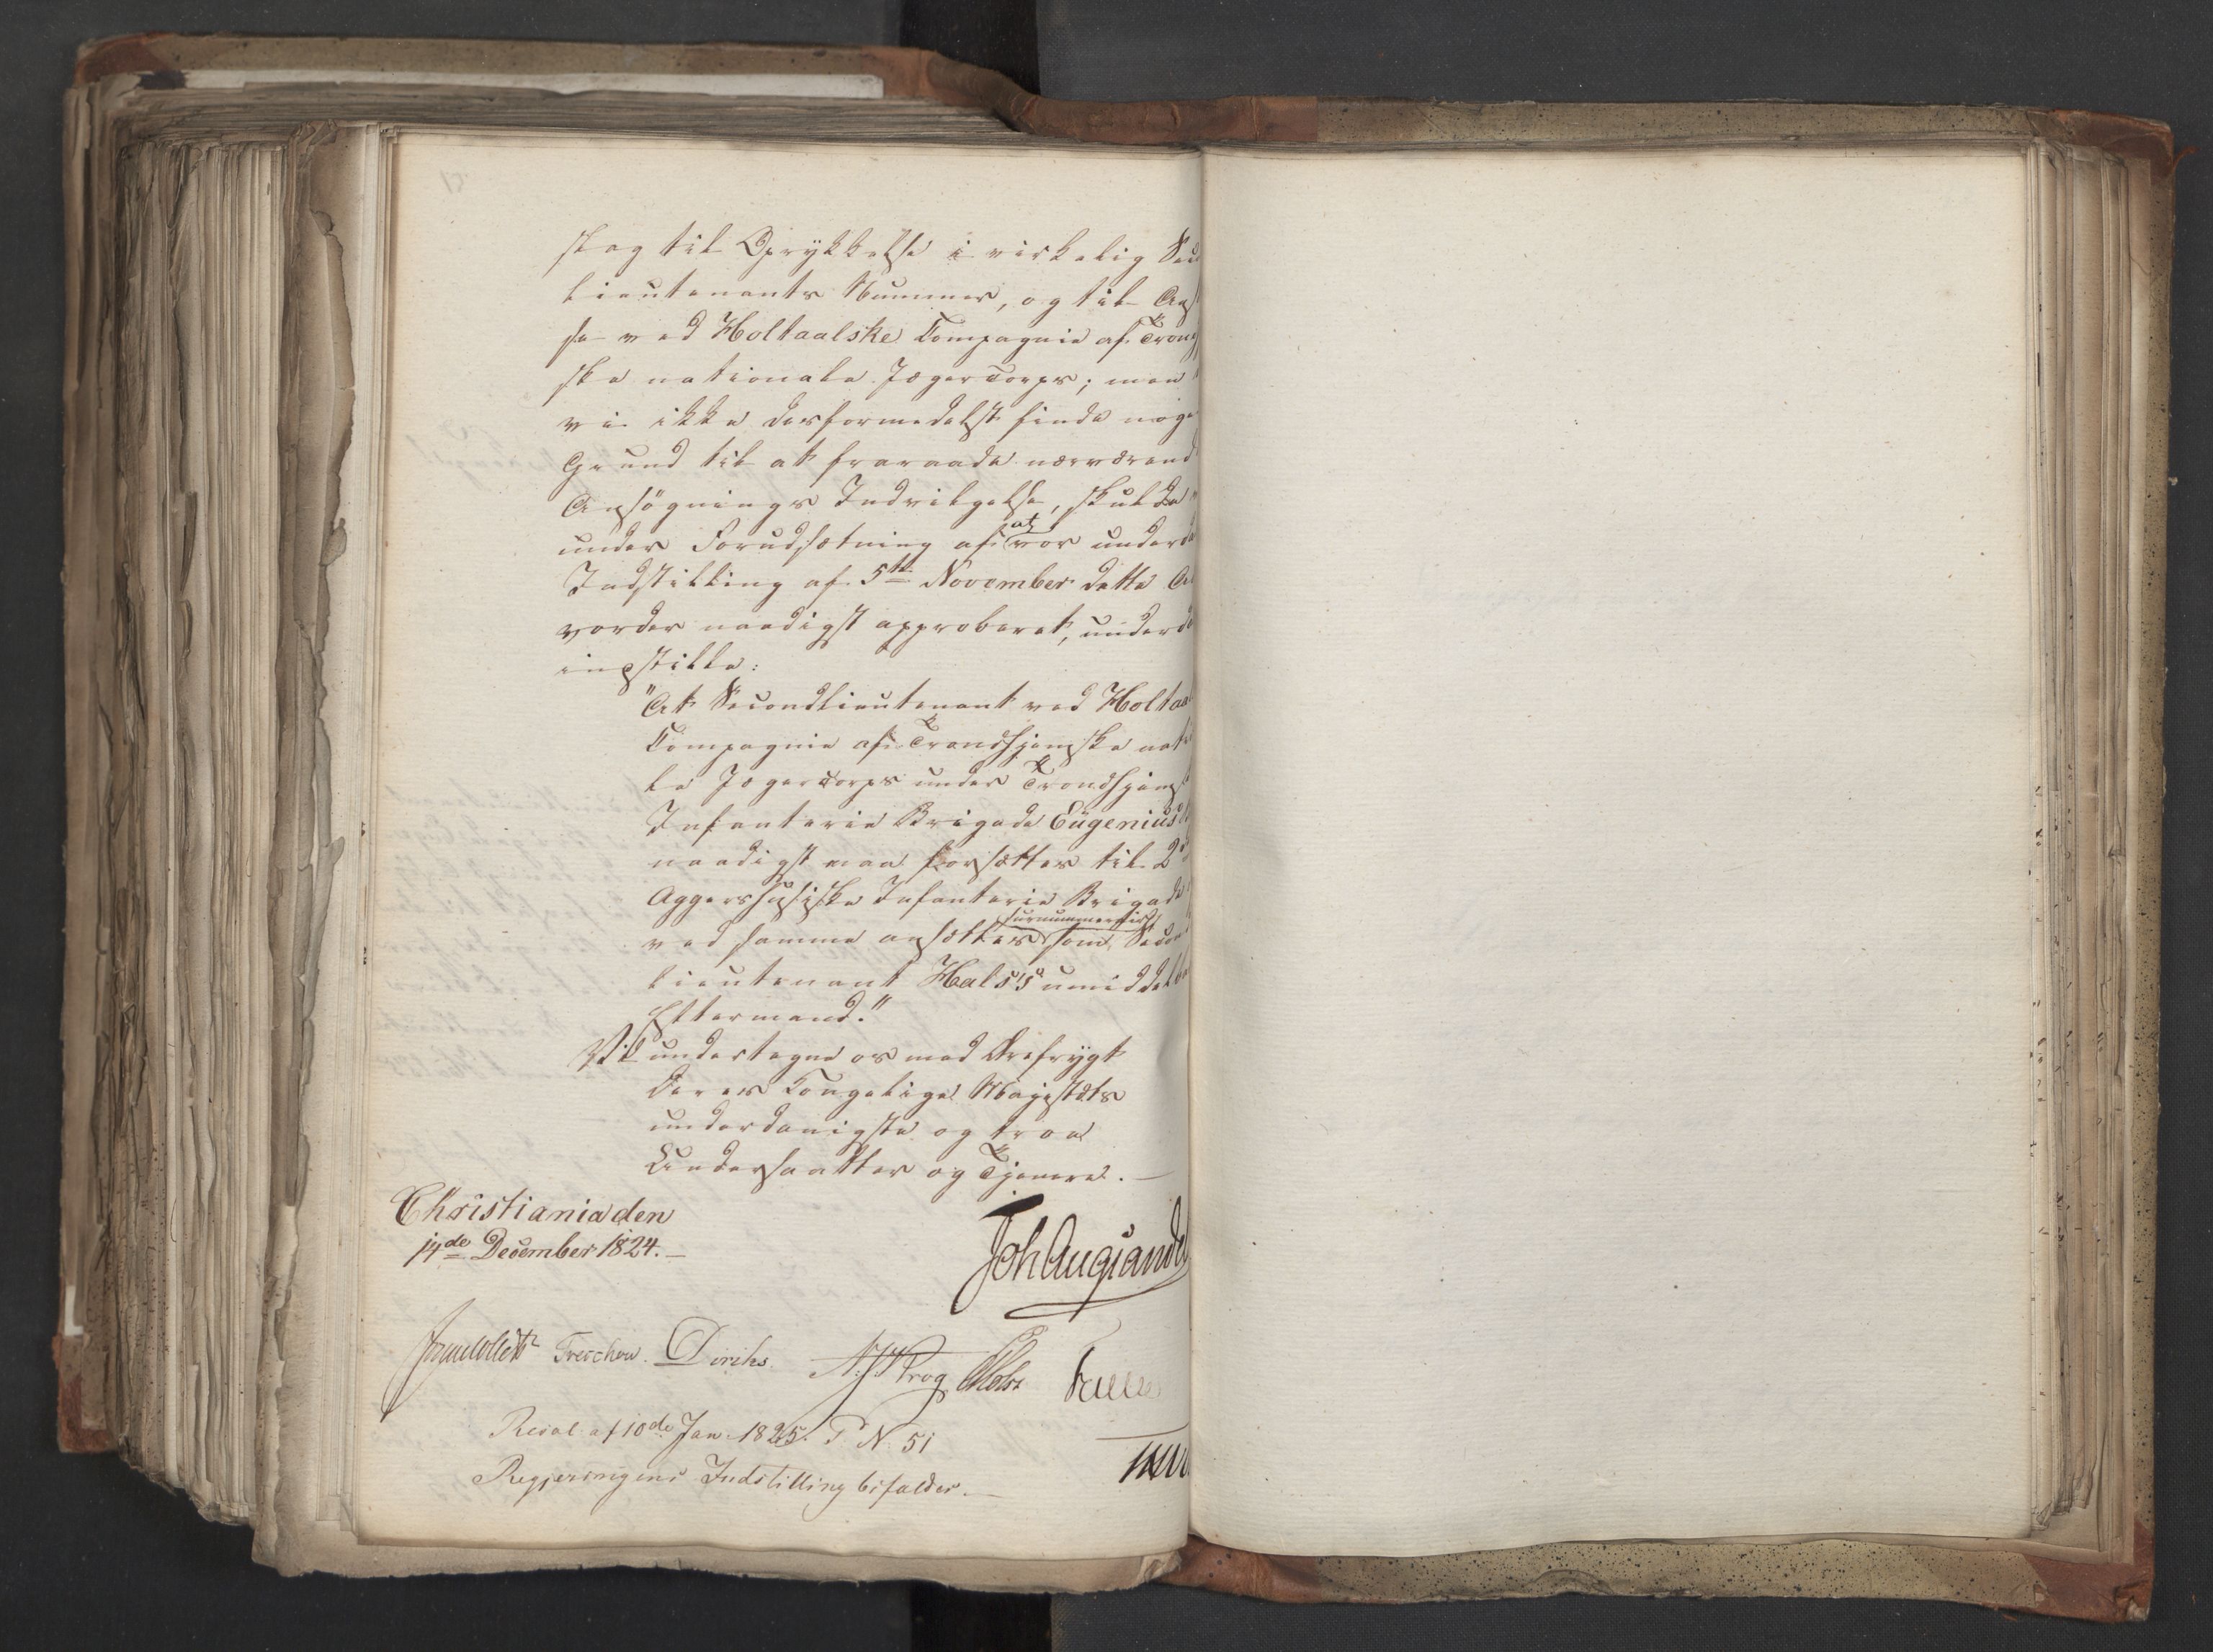 slag til Oprykkelse i virkelig Sec
lieutenants Nummer, og til An
se ved Holtaalske Compagnie af Tron
ske nationale Jægercorps; men
vi ikke desformedelst finde noge
Grund til at fraraade nærværend
Ansøgnings Indvilgelse, skulde
under Forudsætning af at vor underd
Indstilling af 5te November dette A
vorder naadigst approberet, underd
indstille:
"At Secondlieutenant ved Holtaal
Compagnie af Trondhjemske nati
le Jægercorps under Trondhjems
Infanterie Brigade Eugenius
naadigst maa forsættes til 2d
Aggershusiske Infanterie Brigade
ved samme ansættes surnummerair som Secon
lieutenant Hals's umiddelba
Eftermand."
Vi undertegne os med Ærefrygt
Deres Kongelige Majestæts
underdanigste og troe
Undersaatter og Tjenere. —
Christiania den
14de December 1824. —
Joh Aug Sande
Jonas Collett Treschow. Diriks. Krog Holst
Resol. af 10de Jan. 1825. P. N. 51
Regjeringens Indstilling bifaldes. —